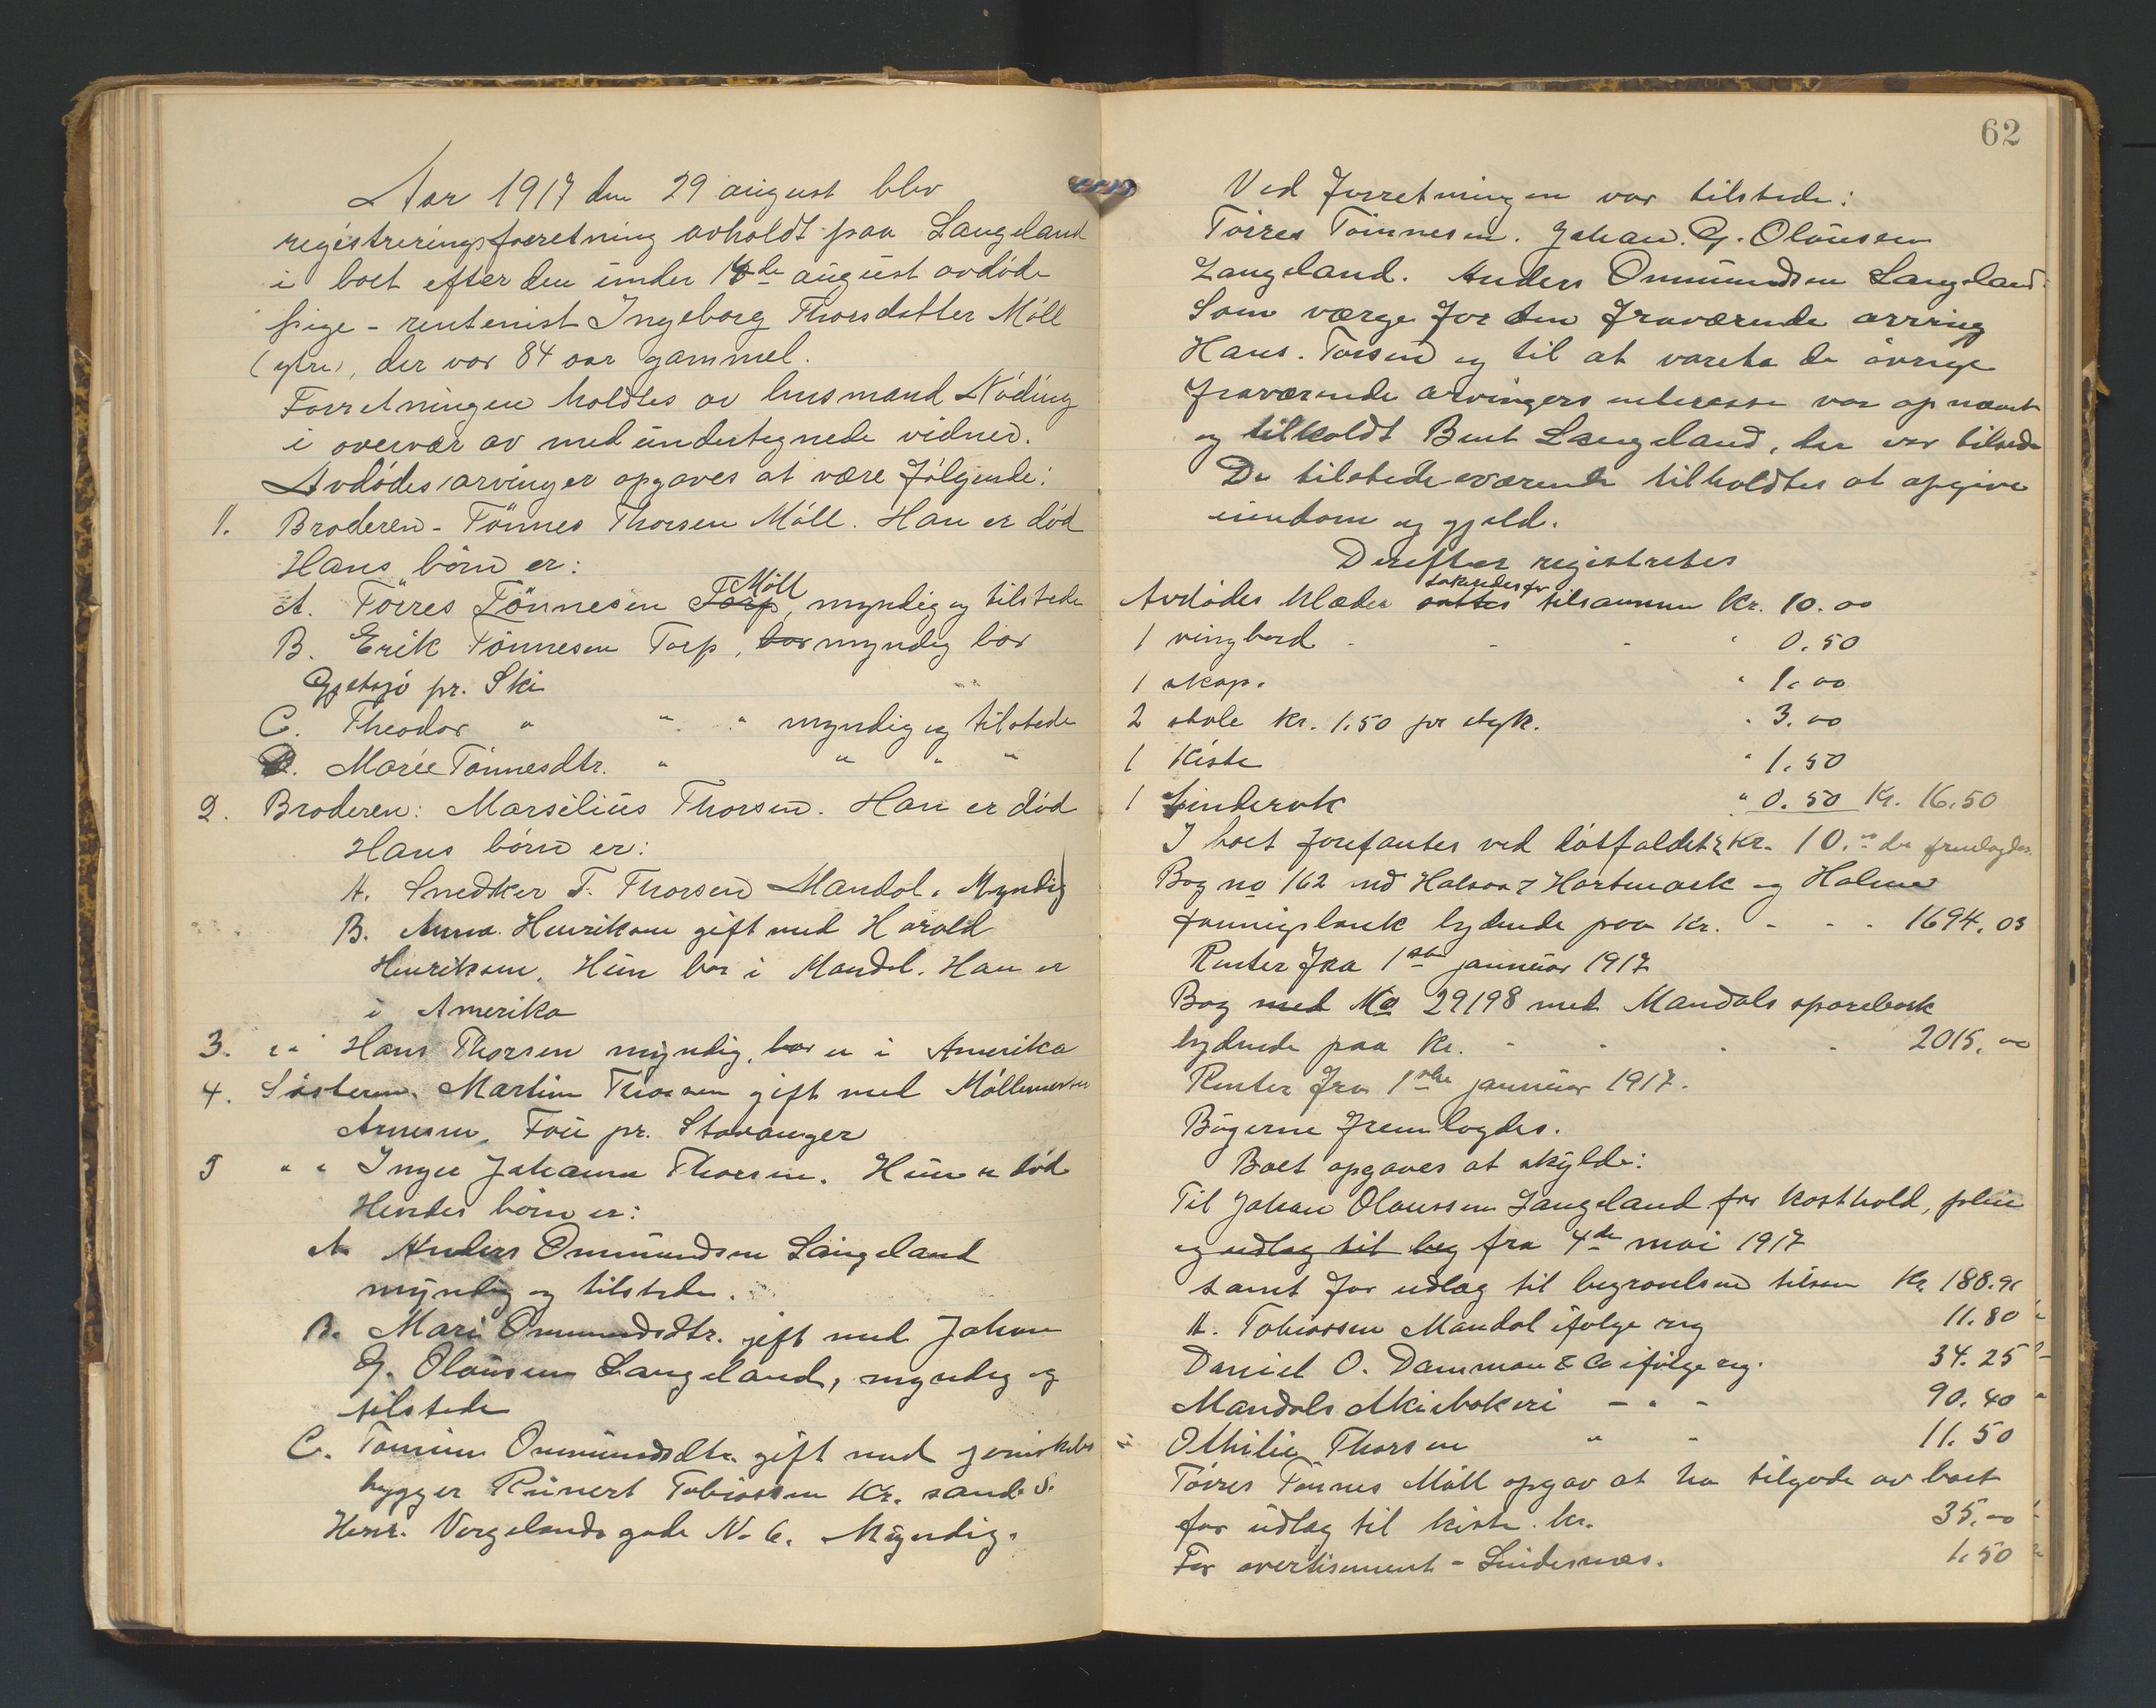 Aar 1917 den 29 august blev
registreringsforretning avholdt paa Langeland
i boet efter den under 14de august avdøde
pige - rentenist Ingeborg Thorsdatter Møll
(ytre), der var 84 aar gammel.
Forretningen holdtes av lensmand Nøding
i overvær av med undertegnede vidner.
Avdødes arvinger opgaves at være følgende:
1. Broderen - Tønnes Thorsen Møll. Han er død
Hans børn er:
A. Tørres Tønnesen Torp Møll, myndig og tilstede
B. Erik Tønnesen Torp, bor myndig bor
Gjetsjø pr. Ski
C. Theodor " " " myndig og tilstede
D. Marie Tønnesdtr. " " " "
2. Broderen: Marselius Thorsen. Han er død
Hans børn er:
A. Snedker T. Thorsen Mandal. Myndig
B. Anna Henriksen gift med Harald
Henriksen. Hun bor i Mandal. Han er
i Amerika
3. " " Hans Thorsen myndig, bor er i Amerika
4. Søsteren. Martine Thorsen gift med Møllemester
Arnesen, Foii pr. Stavanger
5 " " Inger Johanna Thorsen. Hun er død
Hendes børn er:
A Anders Ommundsen Langeland
myndig og tilstede.
B. Mari Ommundsdtr. gift med Johan
G. Olausen Langeland, myndig og
tilstede
C. Tomine Ommundsdtr. gift med
bygger Reinert Tobiassen Kr. sand S.
Henr. Vergelands gade No 6. Myndig.
62
Ved forretningen var tilstede:
Tørres Tønnesen. Johan. G. Olausen
Langeland. Anders Ommundsen Langeland.
Som værge for den fraværende arving
Hans. Torsen og til at vareta de øvrige
fraværende arvingers interesse var opnævnt
og tilkaldt Bent Langeland, der var tilstede
De tilstedeværende tilholdtes at opgive
eiendom og gjæld.
Derefter registrertes
Avdødes klæder sattes takseredes for tilsammen Kr. 10.00
1 vingbord - - - " 0.50
1 skap. " 1.00
2 stole kr. 1.50 pr styk. " 3.00
1 Kiste " 1.50
1 spinderok " 0.50 Kr. 16.50
I boet forefantes ved dødsfaldet Kr. 10.00 der fremlagdes.
Bog no 162 ved Halvor Hartmark og Holme
sparebank lydende paa Kr. - - - 1694.03
Renter fra 1ste januar 1917
Bog med No 29198 med Mandals sparebank
lydende paa Kr. - - - - 2015.00
Renter fra 1ste januar 1917.
Bøgerne fremlagdes.
Boet opgaves at skylde:
Til Johan Olaussen Langeland for kosthold, pleie
og udlag til beg fra 4de mai 1917
samt for udlag til begravelsen tilsam Kr. 188.91
A. Tobiassen Mandal ifølge reg 11.80
Daniel O. Damman & Co ifølge reg. 34.25
Mandals Aktiebakeri - " - 90.40
Othilie Thorsen " - 11.50
Tørres Tønnes Møll opgav at ha tilgode av boet
for udlag til kiste. kr. 35.00
For avertisement - Lindesnæs. 1.50